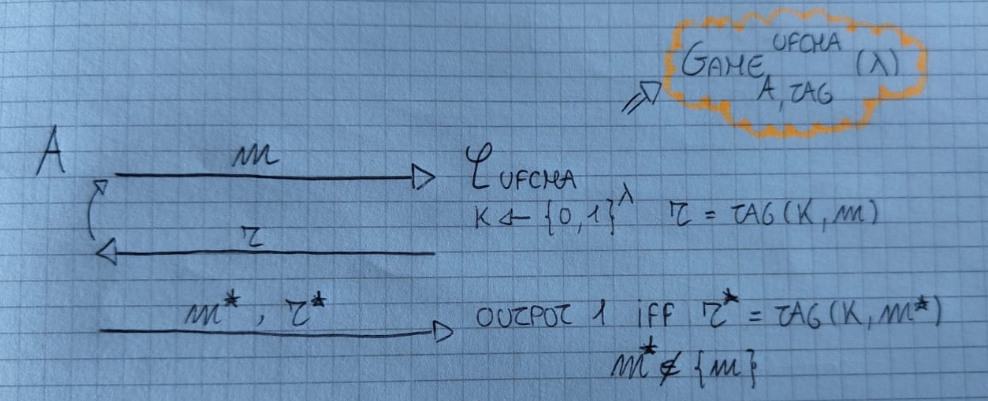 GAME^{UFCMA}_{A, TAG} (λ)
A m C_{UFCMA}
K ← {0,1}^λ τ = TAG(K, m)
τ
m*, τ* OUTPUT 1 iff τ* = TAG(K, m*)
m* ∉ {m}